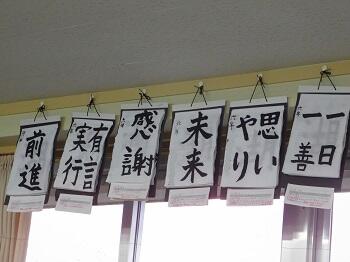 前進
有言
実行
感謝
未来
思い
やり
一日
一善